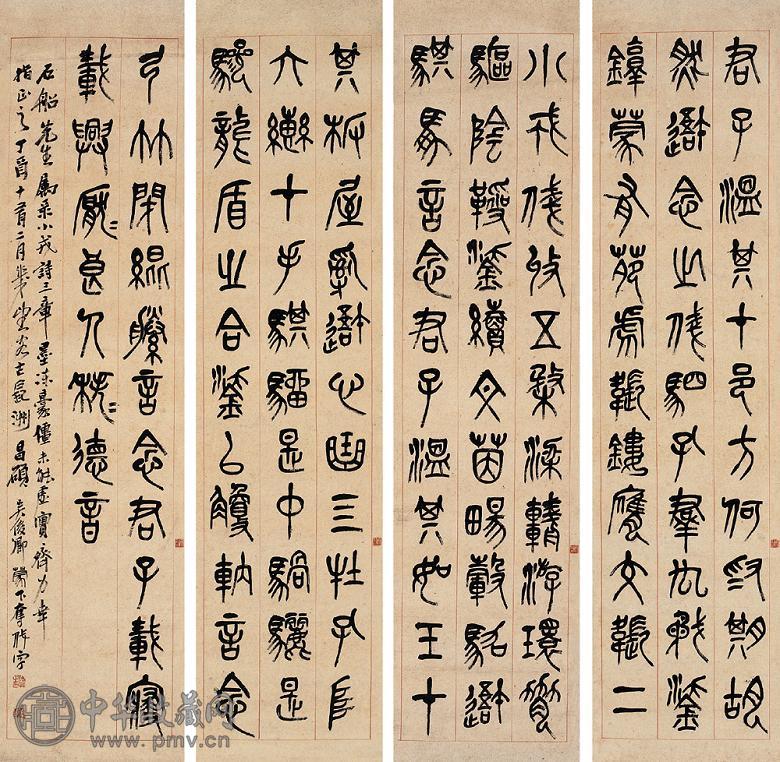 君子溫其在邑方何爲期胡
然我念之俴駟孔群厹矛鋈
錞蒙伐有苑虎韔鏤膺交韔二
小戎俴收五楘梁輈游環脅
驅陰靷鋈續文茵暢轂駕我
騏馵言念君子溫其如玉在
其板屋亂我心曲四牡孔阜
六轡在手騏駵是中騧驪是
驂龍盾之合鋈以觼軜言念
弓竹閉緄縢言念君子載寢
載興厭〻良人秩〻德音
石船先生屬篆小戎詩三章墨凍豪僵未能虛實齊力幸
指正之丁酉十有二月 昌碩吳俊卿
中华收藏网
www.pmv.cn